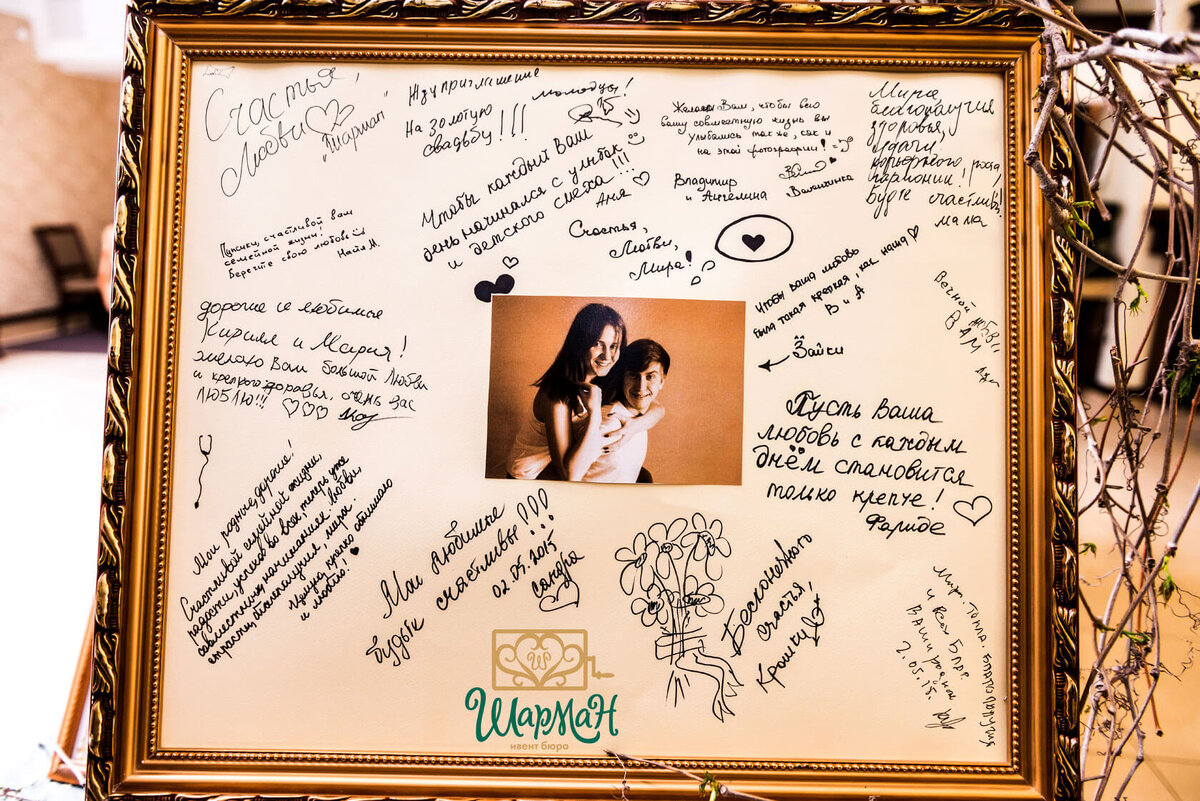 Счастья,
Любви
"Шарман"
Жду приглашение
На золотую
свадьбу!!!
молодцы!
Чтобы каждый Ваш
день начинался с улыбок
и детского смеха!!!
Аня
Желаем Вам, чтобы всю
вашу совместную жизнь вы
улыбались так же, как и
на этой фотографии!
Владимир
и Ангелина
Валентинка
Мира
благополучия
здоровья,
удачи
карьерного роста
гармонии!
Будьте счастливы!
мама
Пупсики, счастливой вам
семейной жизни!
Берегите свою любовь
Настя М.
Счастья,
Любви,
Мира!
Чтобы ваша любовь
была такая крепкая, как наша
В и А
Зайки
Вечной
ВАМ
дорогие и любимые
Кирилл и Мария!
желаю Вам большой Любви
и крепкого здоровья, очень вас
ЛЮБЛЮ!!!
Пусть Ваша
любовь с каждым
днём становится
только крепче!
Фариде
Мои родные, дорогие!
Счастливой семейной жизни,
радости, успехов во всех, теперь уже
совместных начинаниях. Любви,
страсти, благополучия, мира.
Целую, крепко обнимаю
и люблю!
Мои Любимые
будьте счастливы!!!
02.05.2015
Сандра
Бесконечного
счастья,
Крошки
Мира, тепла,
и всех благ
Ваши родной
2.05.15.
Шарман
ивент бюро